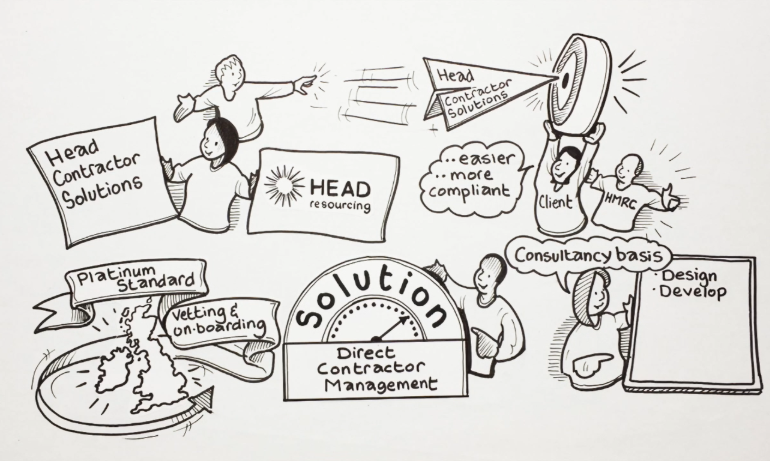 Head
Contractor
Solutions
HEAD
resourcing
Head
Contractor
Solutions
..easier
..more
compliant
Client
HMRC
Platinum
Standard
Vetting &
on-boarding
Solution
Direct
Contractor
Management
Consultancy basis
· Design
· Develop